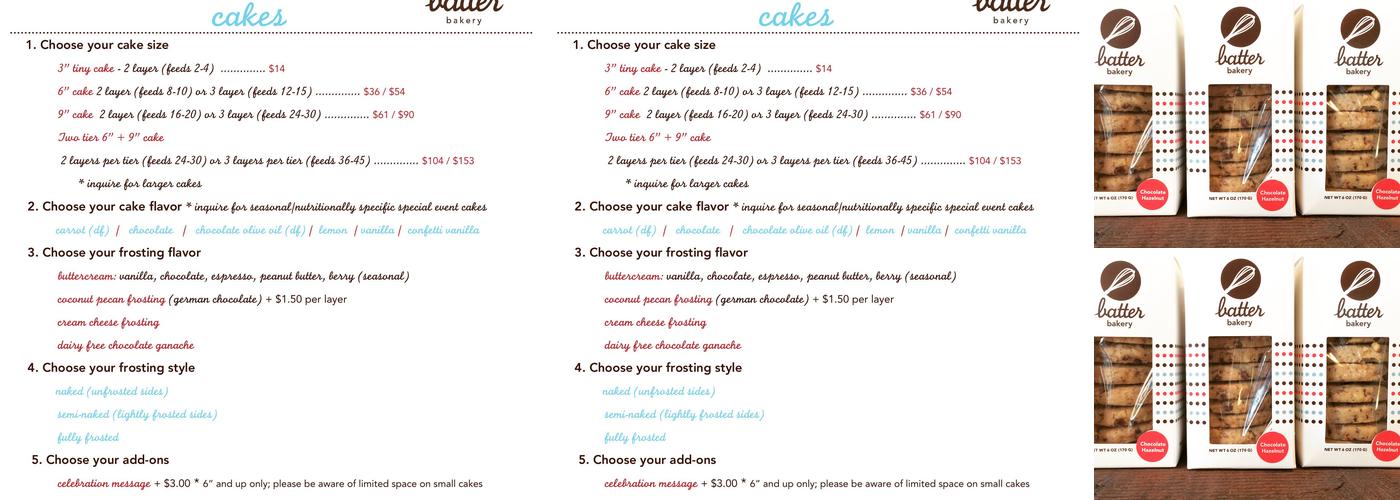 cakes
batter
bakery
1. Choose your cake size
3" tiny cake - 2 layer (feeds 2-4) .............. $14
6" cake 2 layer (feeds 8-10) or 3 layer (feeds 12-15) .............. $36 / $54
9" cake 2 layer (feeds 16-20) or 3 layer (feeds 24-30) .............. $61 / $90
Two tier 6" + 9" cake
2 layers per tier (feeds 24-30) or 3 layers per tier (feeds 36-45) .............. $104 / $153
* inquire for larger cakes
2. Choose your cake flavor * inquire for seasonal/nutritionally specific special event cakes
carrot (df) | chocolate | chocolate olive oil (df) | lemon | vanilla | confetti vanilla
3. Choose your frosting flavor
buttercream: vanilla, chocolate, espresso, peanut butter, berry (seasonal)
coconut pecan frosting (german chocolate) + $1.50 per layer
cream cheese frosting
dairy free chocolate ganache
4. Choose your frosting style
naked (unfrosted sides)
semi-naked (lightly frosted sides)
fully frosted
5. Choose your add-ons
celebration message + $3.00 * 6" and up only; please be aware of limited space on small cakes
cakes
batter
bakery
1. Choose your cake size
3" tiny cake - 2 layer (feeds 2-4) .............. $14
6" cake 2 layer (feeds 8-10) or 3 layer (feeds 12-15) .............. $36 / $54
9" cake 2 layer (feeds 16-20) or 3 layer (feeds 24-30) .............. $61 / $90
Two tier 6" + 9" cake
2 layers per tier (feeds 24-30) or 3 layers per tier (feeds 36-45) .............. $104 / $153
* inquire for larger cakes
2. Choose your cake flavor * inquire for seasonal/nutritionally specific special event cakes
carrot (df) | chocolate | chocolate olive oil (df) | lemon | vanilla | confetti vanilla
3. Choose your frosting flavor
buttercream: vanilla, chocolate, espresso, peanut butter, berry (seasonal)
coconut pecan frosting (german chocolate) + $1.50 per layer
cream cheese frosting
dairy free chocolate ganache
4. Choose your frosting style
naked (unfrosted sides)
semi-naked (lightly frosted sides)
fully frosted
5. Choose your add-ons
celebration message + $3.00 * 6" and up only; please be aware of limited space on small cakes
batter
bakery
Chocolate
Hazelnut
WT 6 OZ (170 G)
batter
bakery
Chocolate
Hazelnut
NET WT 6 OZ (170 G)
batter
bakery
Chocolate
Hazelnut
NET WT 6 OZ (170 G)
batter
bakery
Chocolate
Hazelnut
WT 6 OZ (170 G)
batter
bakery
Chocolate
Hazelnut
NET WT 6 OZ (170 G)
batter
bakery
Chocolate
Hazelnut
NET WT 6 OZ (170 G)